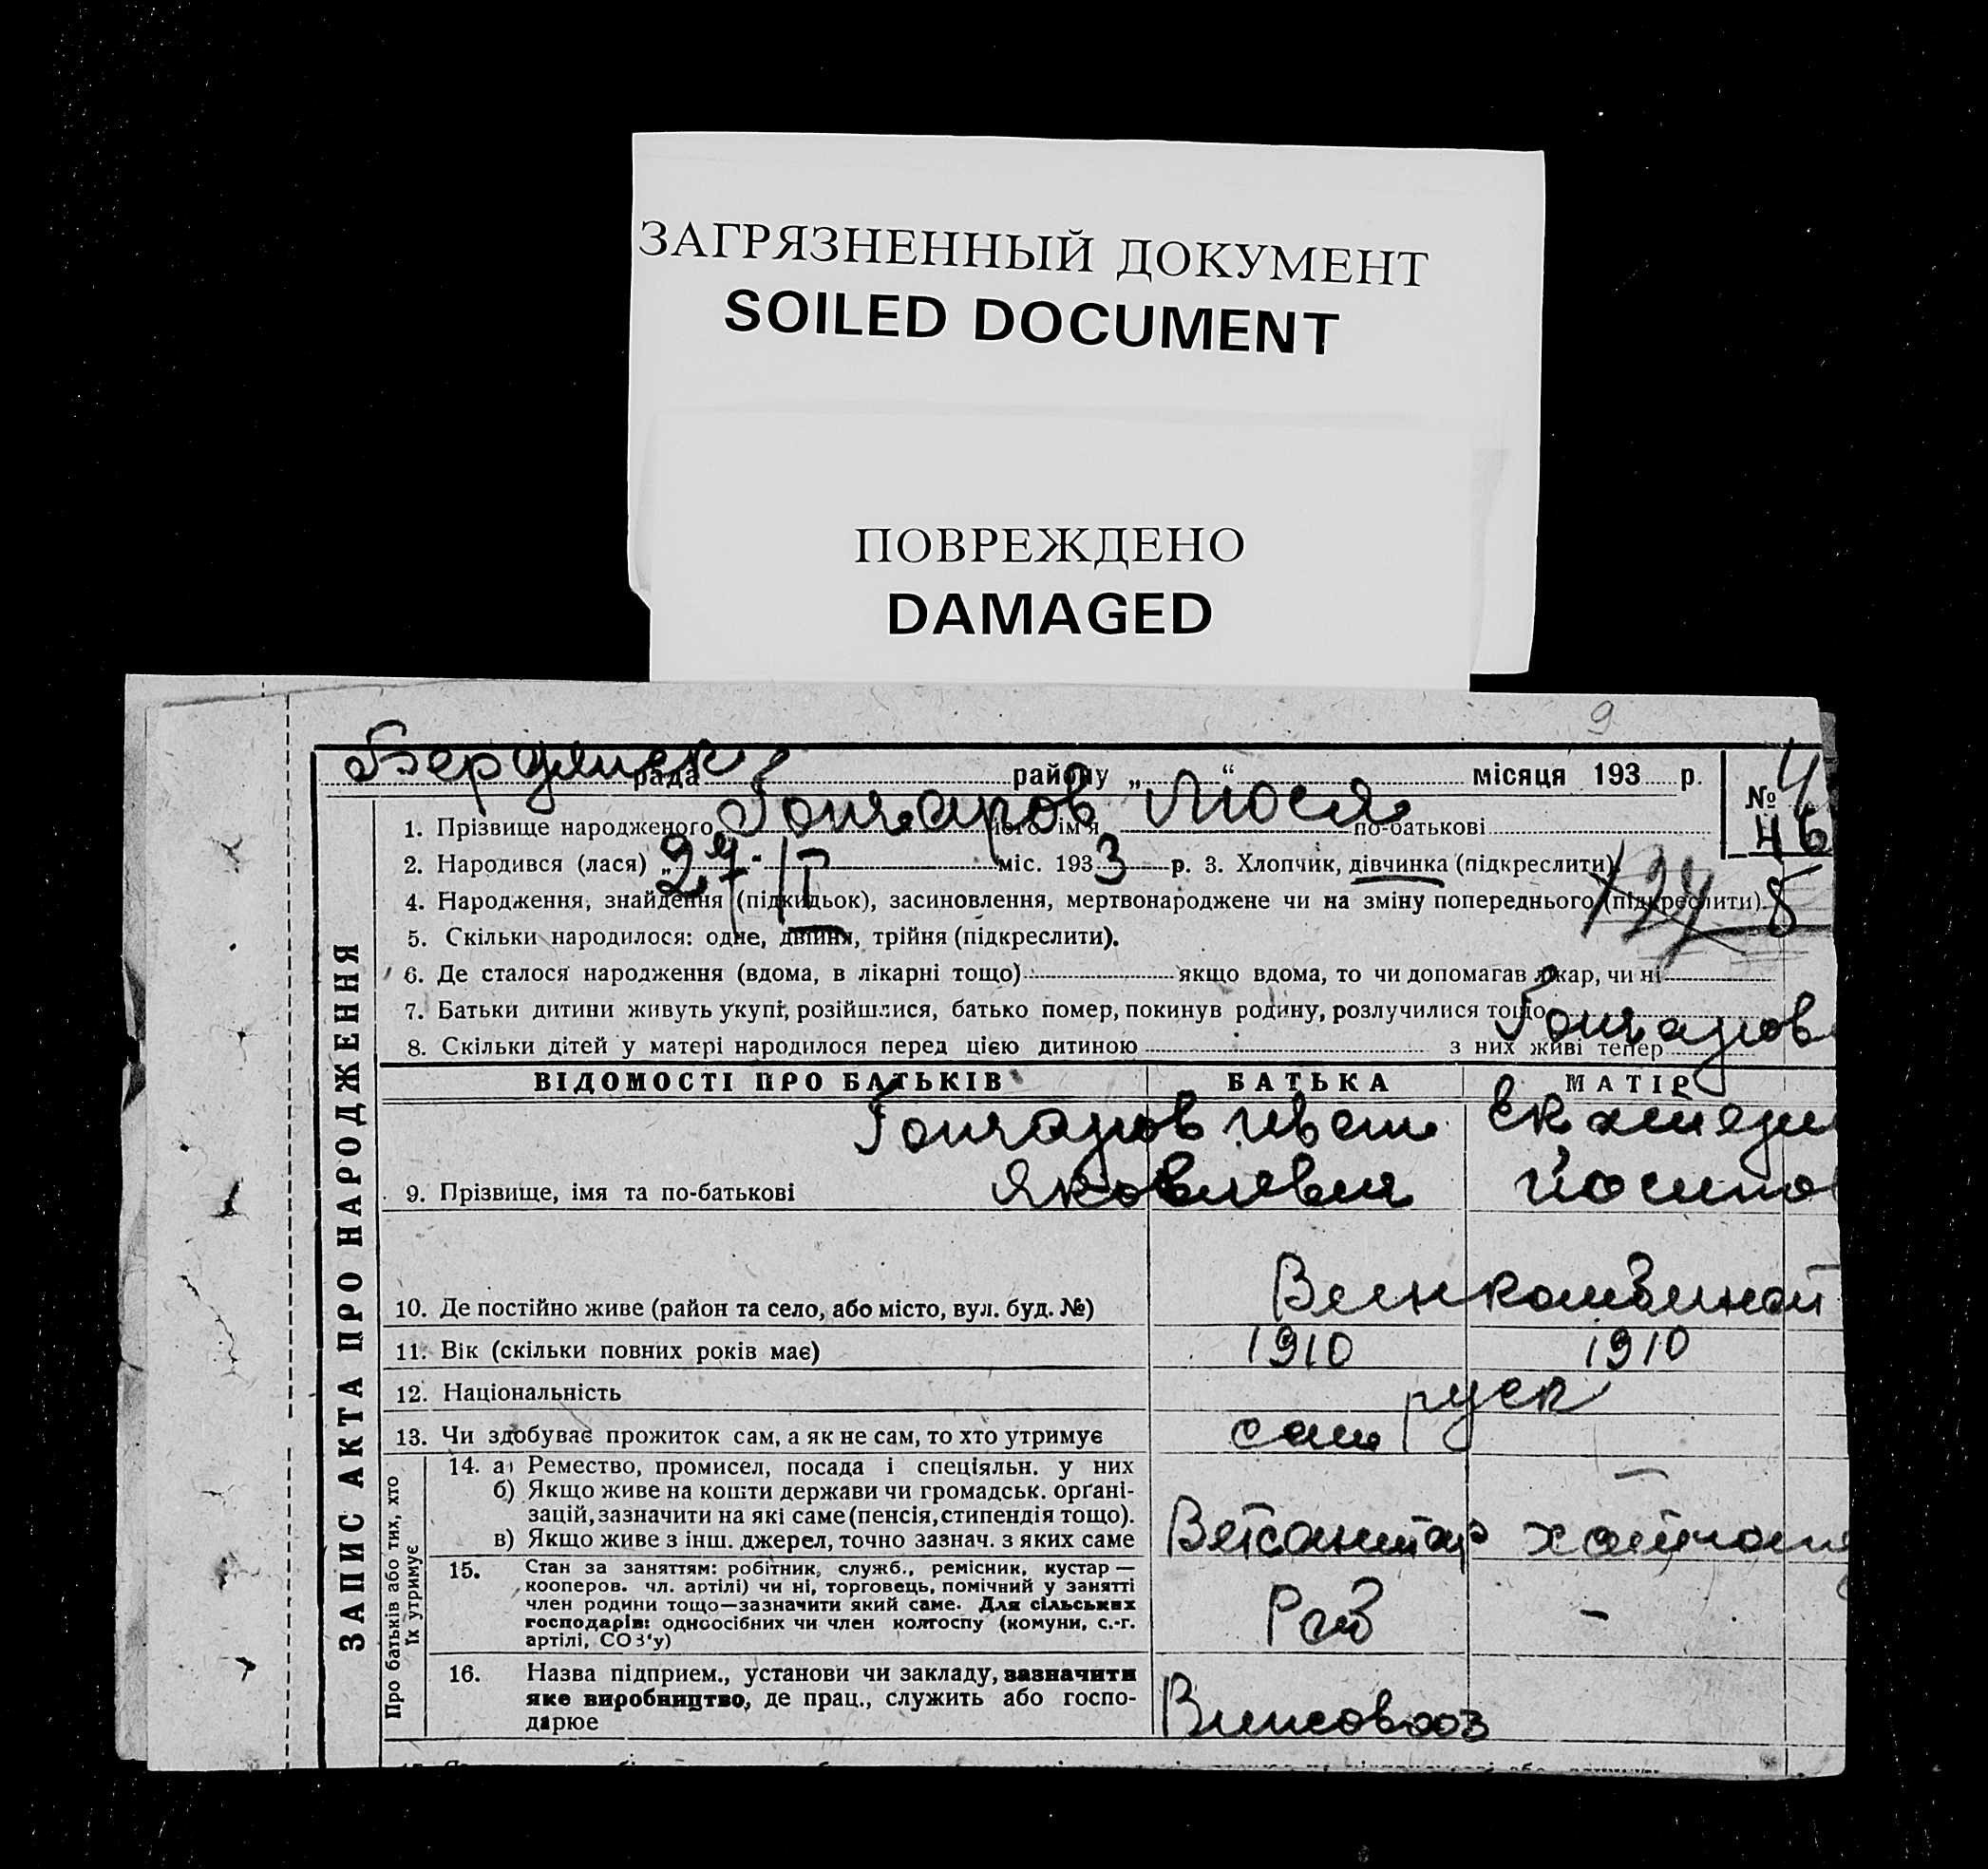 ЗАГРЯЗНЕННЫЙ ДОКУМЕНТ
SOILED DOCUMENT
ПОВРЕЖДЕНО
DAMAGED
9
Бердянск рада району „ “ місяця 193 р.
№ 4
46
1. Прізвище народженого Гончаров його ім'я Люся по-батькові
2. Народився (лася) „ 27 - II міс. 1933 р. 3. Хлопчик, дівчинка (підкреслити)
4. Народження, знайдення (підкидьок), засиновлення, мертвонароджене чи на зміну попереднього (підкреслити).
5. Скільки народилося: одне, двійня, трійня (підкреслити).
6. Де сталося народження (вдома, в лікарні тощо) якщо вдома, то чи допомагав лікар, чи ні
7. Батьки дитини живуть укупі, розійшлися, батько помер, покинув родину, розлучилися тощо
8. Скільки дітей у матері народилося перед цією дитиною з них живі тепер
Гончаров
ЗАПИС АКТА ПРО НАРОДЖЕННЯ
ВІДОМОСТІ ПРО БАТЬКІВ БАТЬКА МАТІР
Гончаров Иван Екатери
9. Прізвище, імя та по-батькові Яковлевич Йосипо
10. Де постійно живе (район та село, або місто, вул. буд. №)
11. Вік (скільки повних років має) 1910 1910
12. Національність руск
13. Чи здобуває прожиток сам, а як не сам, то хто утримує сам
Про батьків або тих, хто їх утримує
14. а) Ремество, промисел, посада і спеціяльн. у них
б) Якщо живе на кошти держави чи громадськ. орґані-
зацій, зазначити на які саме (пенсія, стипендія тощо).
в) Якщо живе з інш. джерел, точно зазнач. з яких саме Ветсанитар
15. Стан за заняттям: робітник, служб., ремісник, кустар —
кооперов. чл. артілі) чи ні, торговець, помічний у занятті
член родини тощо—зазначити який саме. Для сільських
господарів: одноосібних чи член колгоспу (комуни, с.-г.
артілі, СОЗ'у) Раб -
16. Назва підприєм., установи чи закладу, зазначити
яке виробництво, де прац., служить або госпо-
дарює